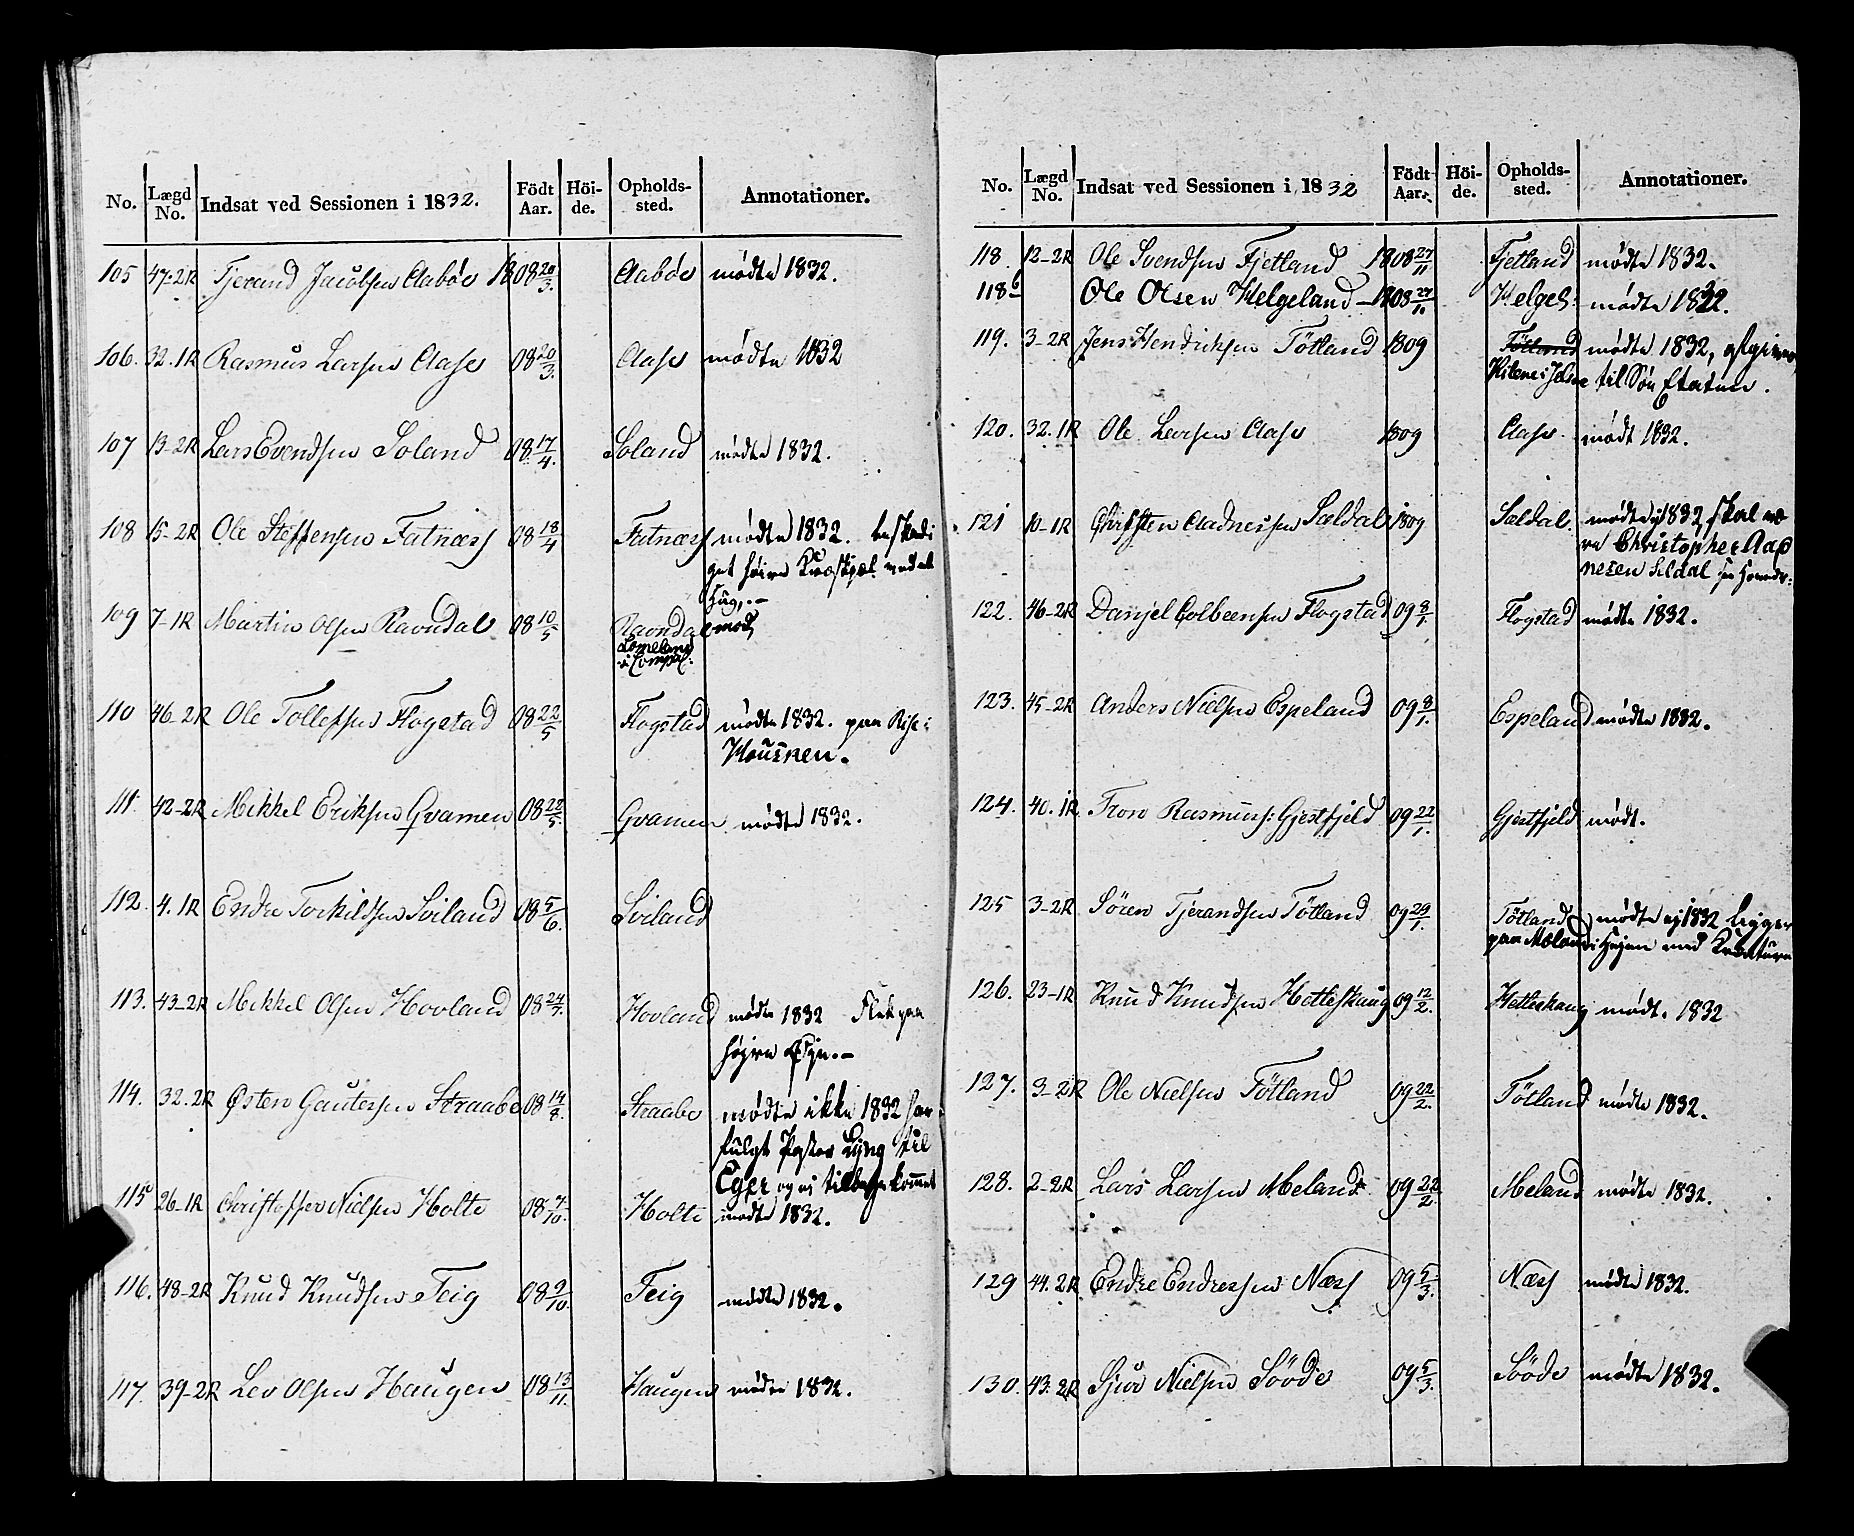 No. Lægd No. Indsat ved Sessionen i 1832. Födt Aar. Höi-de. Opholds-sted. Annotationer.
105 47-2R Tjerand Jacobsen Aabøe 1808 20/3. Aabøe mødte 1832.
106. 32.1R Rasmus Larsen Aase 08 20/3. Aase mødte 1832
107 13-2R Lars Evendsen Soland 08 17/4. Soland mødte 1832.
108 15-2R Ole Steffensen Fatnæss 08 18/4 Fatnæss mødte 1832. beskadi
get høire Knæskjæl ved et
Hug,.-
109 7-1R Martin Olsen Ravndal 08 10/5 Ravndal mødt
Lomeland
i
110 46-2R Ole Tollefsen Flogstad 08 22/5 Flogstad mødte 1832. paa Rise i
Housken.
111. 42-2R Mikkel Eriksen Gvamen 08 22/5. Gvamen mødte 1832.
112. 4.1R Endre Torkildsen Sviland 08 5/6. Sviland
113. 43-2R Mikkel Olsen Hovland 08 24/7. Hovland mødte 1832 Flek paa
højre Øje.-
114. 32.2R Østen Gautesen Straabe 08 14/8. Straabe mødte ikke 1832 har
fulgt Pastor Lyng til
Eger og ej tilbagekommet
115 26-1R Christoffer Nielsen Holte 08 7/10. Holte mødte 1832.
116. 48-2R Knud Knudsen Teig 08 9/10. Teig mødte 1832.
117. 39-2R Lev Olsen Haugen 08 13/11. Haugen mødte 1832.
No. Lægd No. Indsat ved Sessionen i 1832 Födt Aar. Höi-de. Opholds-sted. Annotationer.
118. 12-2R Ole Svendsen Fjetland 1808 27/11 Fjetland mødte 1832.
118b Ole Olsen Helgeland - 1808 27/11. Helgel: mødte 1832.
119. 3-2R Jens Hendriksen Tötland 1809 Tötland mødte 1832, afgiven
Hitene i Jelse til Søe Etaten.
120. 32.1R Ole Larsen Aase 1809 Aase. mødt 1832.
121 10-1R Christen Aadnessen Sældal 1809 Sældal. mødte ej 1832, skal væ
re Christopher Aad
nesen Seldal
122. 46-2R Danjel Colbeensen Flogstad 09 8/1. Flogstad mødte 1832.
123. 45-2R Anders Nielsen Espeland 09 8/1. Espeland mødte 1832.
124. 40.1R Tron Rasmuss: Gjestfjeld 09 22/1. Gjestfjeld mødt.
125 3-2R Sören Tjerandsen Tötland 09 29/1. Tötland mødte ej 1832 ligger
paa Mæland i Hejen med Kreaturn
126. 23-1R Knud Knudsen Hetleskaug 09 12/2. Hetleskaug mødt. 1832
127. 3-2R Ole Nielsen Tötland 09 22/2. Tötland mødte 1832.
128. 2-2R Lars Larsen Meland 09 22/2. Meland mødte 1832.
129 44.2R Endre Endressen Næss 09 5/3. Næss mødte 1832.
130. 43.2R Sjur Nielsen Sööde 09 5/3. Sööde mødte 1832.